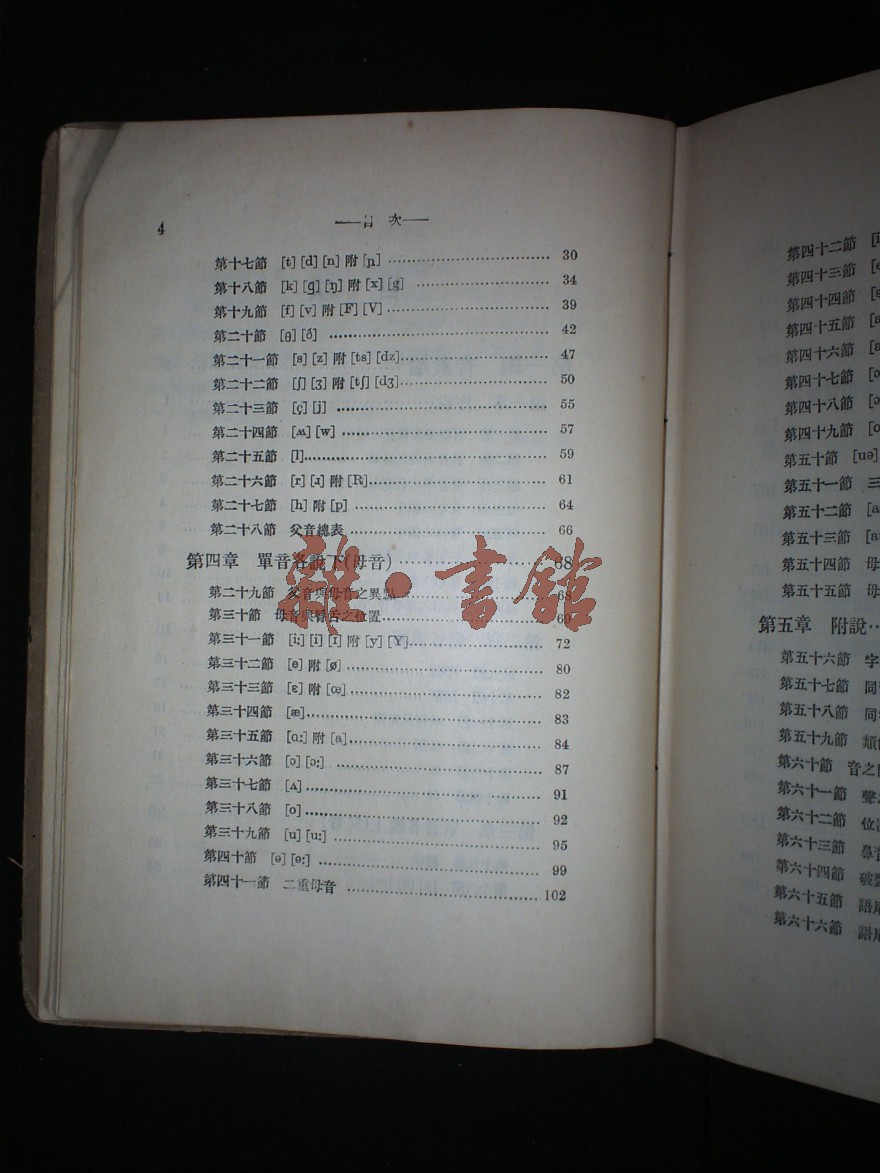 4
——目 次——
第十七節 [t] [d] [n] 附 [ɲ] 30
第十八節 [k] [g] [ŋ] 附 [x] [g] 34
第十九節 [f] [v] 附 [F] [V] 39
第二十節 [θ] [ð] 42
第二十一節 [s] [z] 附 [ts] [dz] 47
第二十二節 [ʃ] [ʒ] 附 [tʃ] [dʒ] 50
第二十三節 [ç] [j] 55
第二十四節 [ʍ] [w] 57
第二十五節 [l] 59
第二十六節 [r] [ɹ] 附 [R] 61
第二十七節 [h] 附 [p] 64
第二十八節 父音總表 66
第四章 單音各說下(母音) 68
第二十九節 父音與母音之異點 68
第三十節 母音與脣舌之位置 69
第三十一節 [i:] [i] [ɪ] 附 [y] [Y] 72
第三十二節 [e] 附 [ø] 80
第三十三節 [ɛ] 附 [œ] 82
第三十四節 [æ] 83
第三十五節 [ɑ:] 附 [a] 84
第三十六節 [ɔ] [ɔ:] 87
第三十七節 [ʌ] 91
第三十八節 [o] 92
第三十九節 [u] [u:] 95
第四十節 [ə] [ə:] 99
第四十一節 二重母音 102
雜·書館
第四十二節
第四十三節
第四十四節
第四十五節
第四十六節
第四十七節
第四十八節
第四十九節
第五十節 [uə]
第五十一節 三
第五十二節
第五十三節
第五十四節 母
第五十五節 母
第五章 附說
第五十六節 字
第五十七節 同
第五十八節 同
第五十九節 類
第六十節 音之
第六十一節 聲
第六十二節 位
第六十三節 鼻
第六十四節 破
第六十五節 語尾
第六十六節 語尾